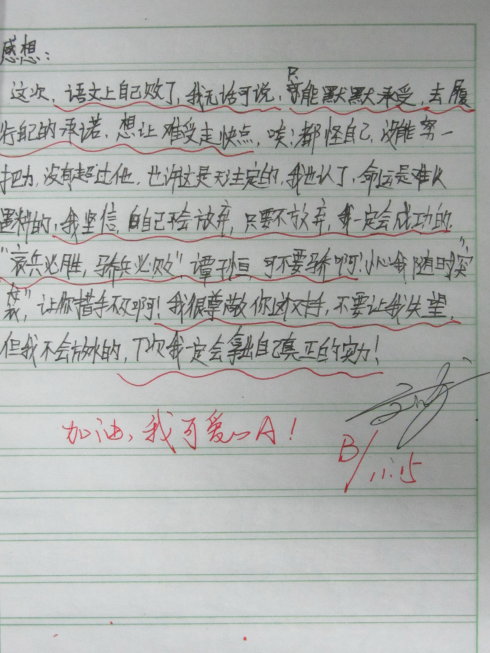 感想：
这次，语文上自己败了，我无话可说，只能默默承受，去履
行自己的承诺，想让难受走快点，唉！都怪自己，没能努一
把力，没有超过他，也许这是天注定的，我也认了，命运是难以
的，我坚信，自己不会放弃，只要不放弃，我一定会成功的.
"哀兵必胜，骄兵必败"谭 恒，可不要骄啊！小心我随时"突
袭"，让你措手不及啊！我很尊敬你这对手，不要让我失望，
但我不会放弃的，下次我一定会拿出自己真正的实力！
加油，我可爱的A！
B/11.15